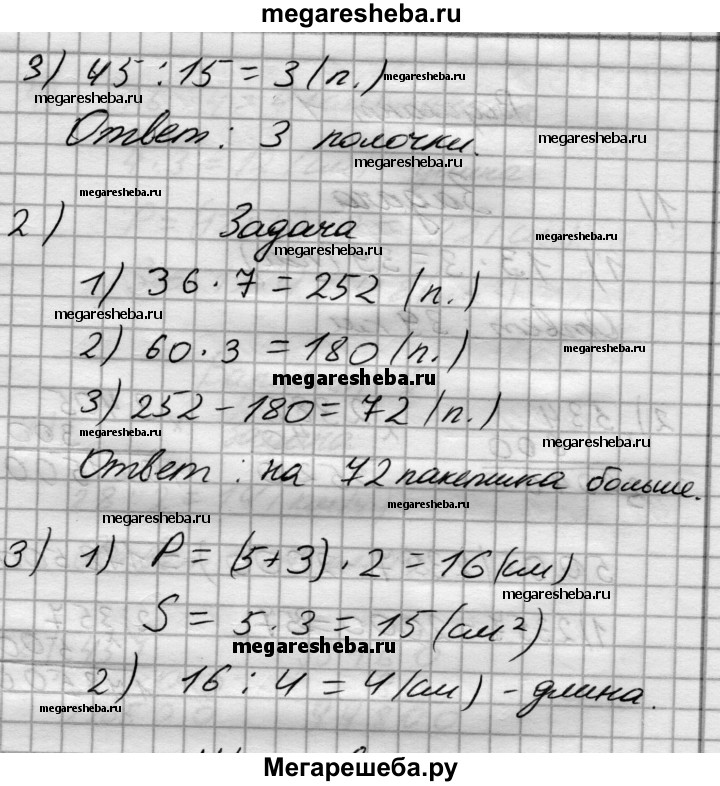 megaresheba.ru
3) 45 : 15 = 3 (п.) megaresheba.ru
megaresheba.ru
Ответ: 3 полочки. megaresheba.ru
megaresheba.ru
megaresheba.ru
2) Задача megaresheba.ru
megaresheba.ru
1) 36 · 7 = 252 (п.)
megaresheba.ru
2) 60 · 3 = 180 (п.) megaresheba.ru
megaresheba.ru
3) 252 - 180 = 72 (п.)
megaresheba.ru megaresheba.ru
Ответ: на 72 пакетика больше.
megaresheba.ru
megaresheba.ru
3) 1) P = (5 + 3) · 2 = 16 (см)
megaresheba.ru
S = 5 · 3 = 15 (см²)
megaresheba.ru
2) 16 : 4 = 4 (см) - длина.
megaresheba.ru
Мегарешеба.ру